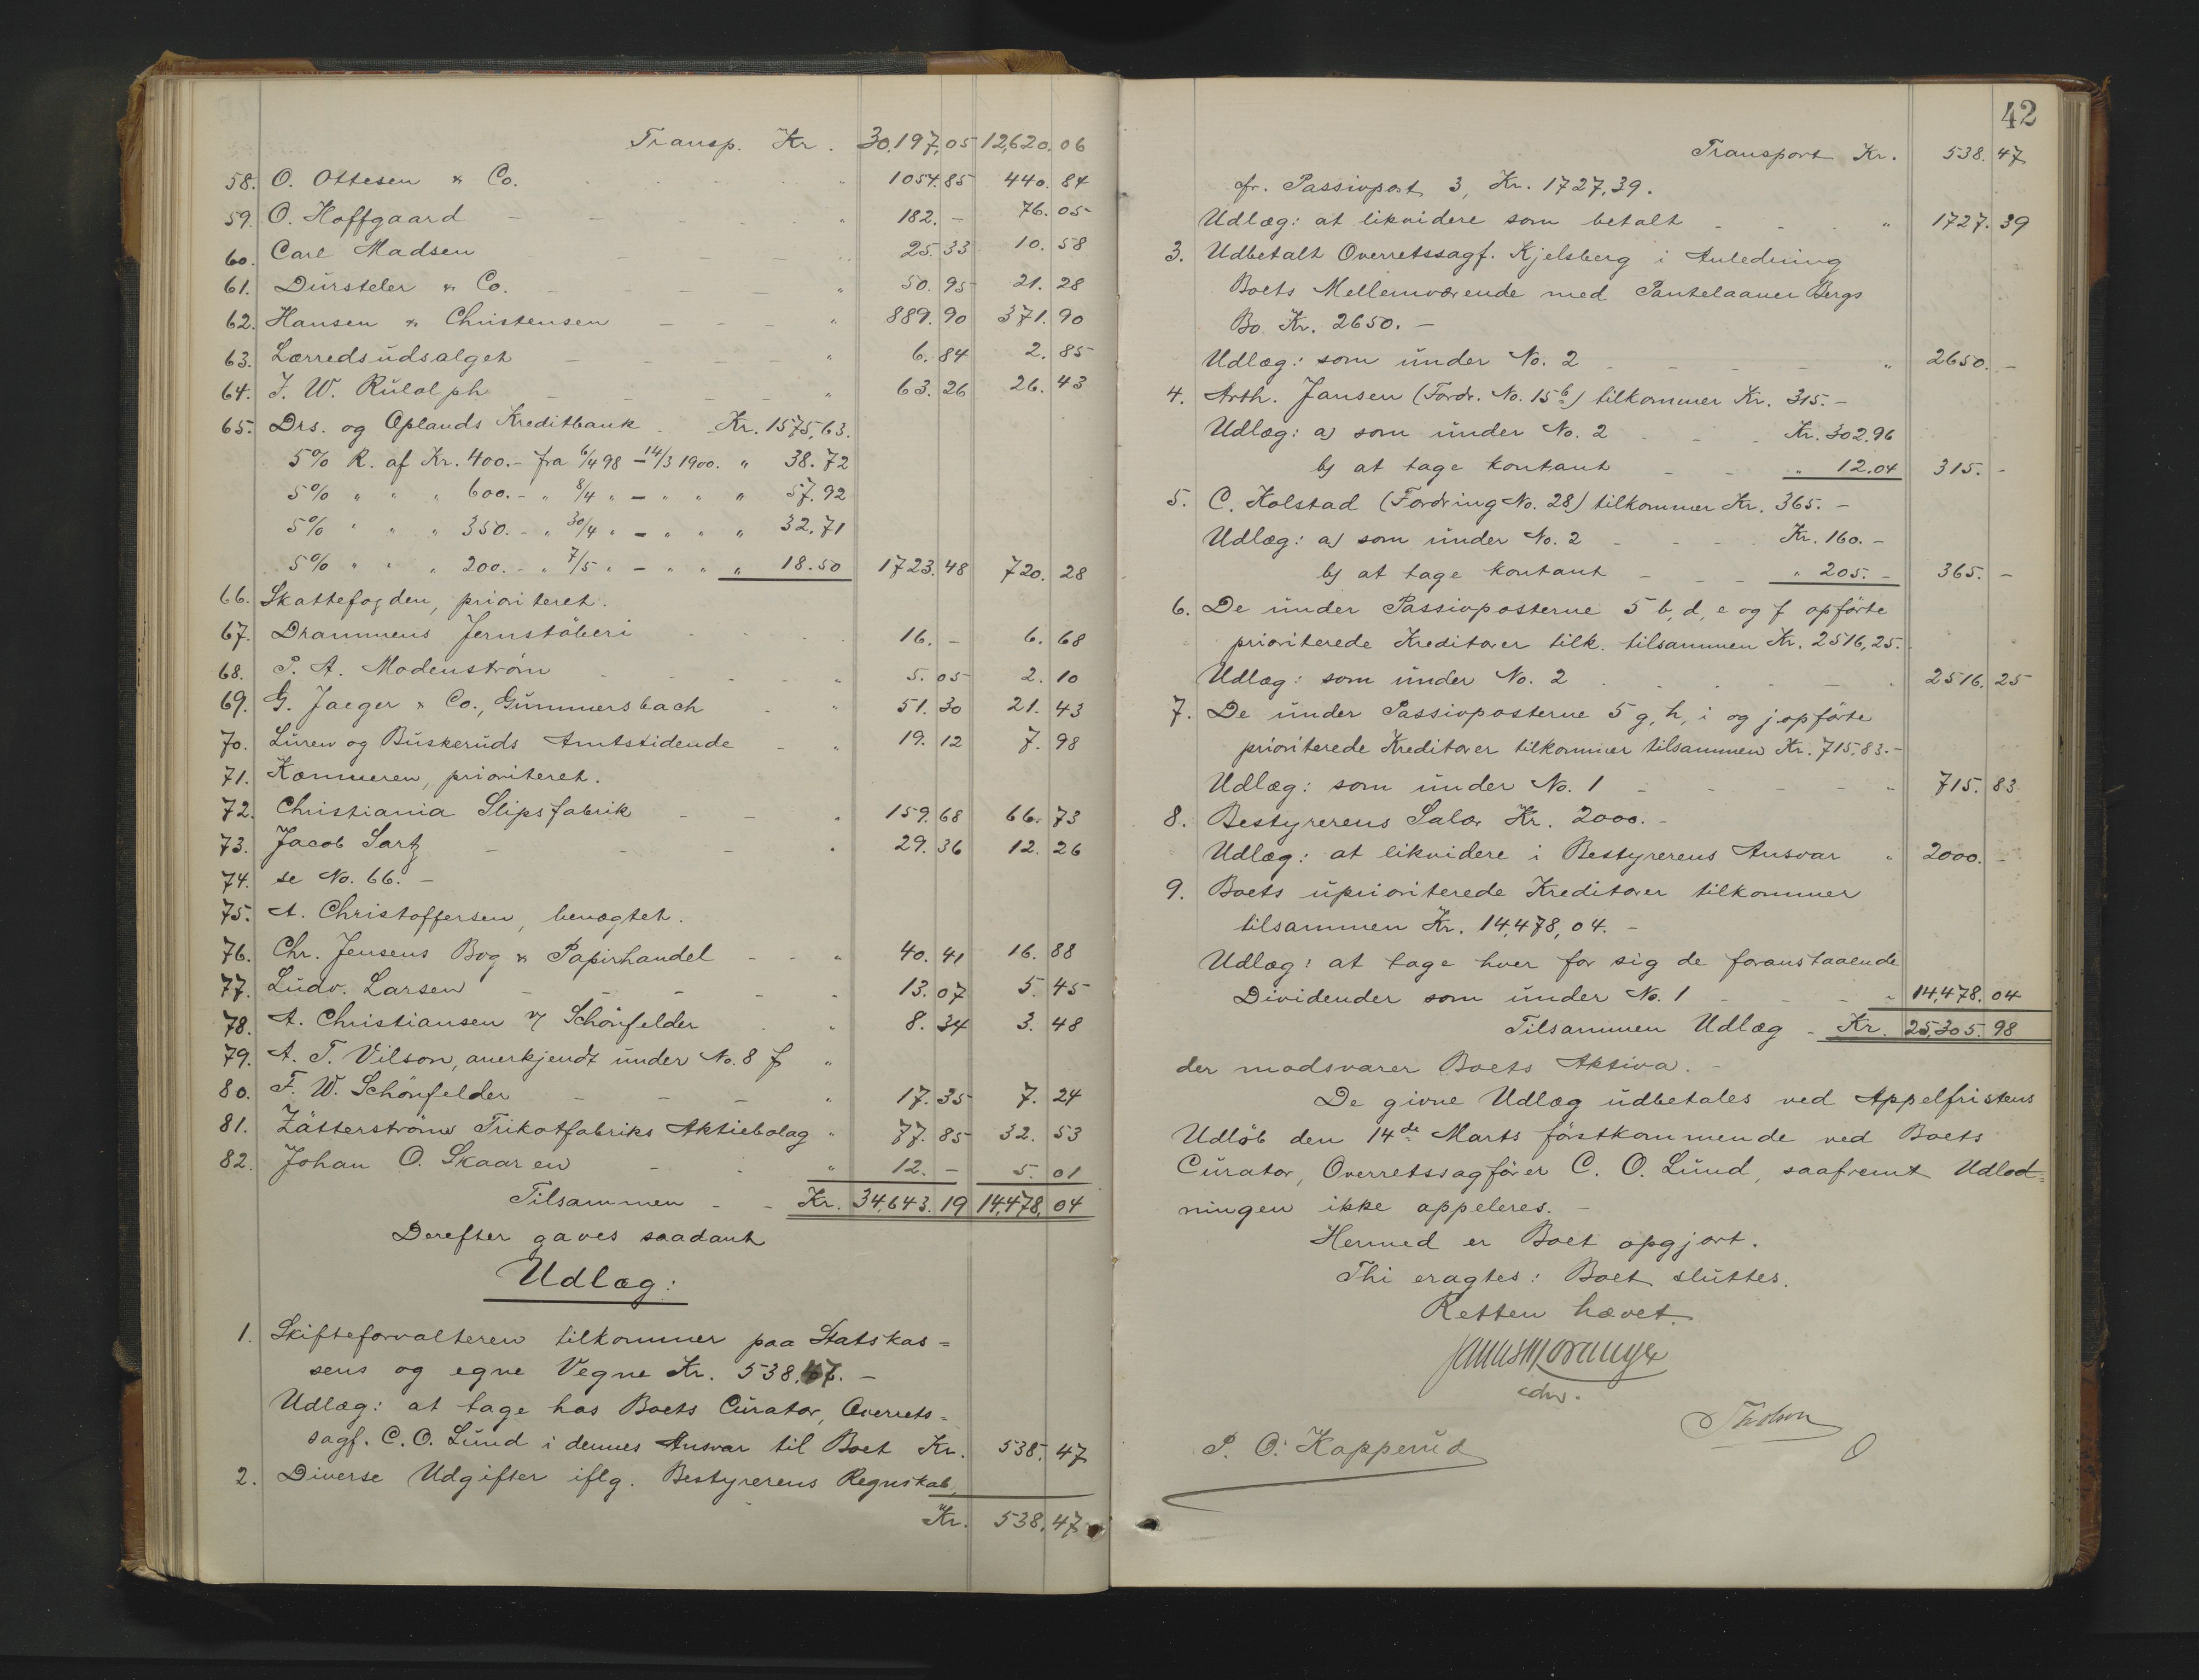 Transp. Kr. 30,197,05 12,620,06
58. O. Ottesen & Co. " 1054.85 440.84
59. O. Hoffgaard " 182.- 76.05
60. Carl Madsen 25.33 10.58
61. Dürsteler & Co. " 50.95 21.28
62. Hansen & Christensen " 889.90 371.90
63. Lærredsudsalget " 6.84 2.85
64. J. W. Rudolph " 63.26 26.43
65. Drs. og Oplands Kreditbank Kr. 1575,63.
5% R. af Kr. 400.- fra 6/4 98 - 14/3 1900. " 38.72
5% " " " 600.- " 8/4 " - " " " 57.92
5% " " " 350.- " 30/4 " - " " " 32.71
5% " " " 200.- " 7/5 " - " " " 18.50 1723.48 720.28
66. Skattefogden, prioriteret.
67. Drammens Jernstöberi 16.- 6.68
68. P. A. Modenström " 5.05 2.10
69. G. Jaeger & Co., Gummersbach " 51.30 21.43
70. Buskeruds Amtstidende " 19.12 7.98
71. Kæmneren, prioriteret.
72. Christiania Slipsfabrik " 159.68 66.73
73. Jacob Sartz " 29.36 12.26
74. se No. 66. -
75. A. Christoffersen, benægtet.
76. Chr. Jensens Bog & Papirhandel " 40.41 16.88
77. Ludv. Larsen " 13.07 5.45
78. A. Christiansen v/ Schönfelder " 8.34 3.48
79. A. T. Vilson, anerkjendt under No. 8 f "
80. F. W. Schönfelder " 17.35 7.24
81. Zätterströms Trikotfabriks Aktiebolag " 77.85 32.53
82. Johan O. Skaaren " 12.- 5.01
Tilsammen - - Kr. 34,643.19 14,478,04
Derefter gaves saadant
Udlæg:
1. Skifteforvalteren tilkommer paa Statskas=
sens og egne Vegne Kr. 538,47. -
Udlæg: at tage hos Boets Curator, Overrets=
sagf. C. O. Lund i dennes Ansvar til Boet Kr. 538,47
2. Diverse Udgifter iflg. Bestyrerens Regnskab,
Kr. 538,47
42
Transport Kr. 538.47
cfr. Passivpost 3, Kr. 1727,39.
Udlæg: at likvidere som betalt " 1727.39
3. Udbetalt Overretssagf. Kjelsberg i Anledning
Boets Mellemværende med Pantelaaner Bergs
Bo Kr. 2650. -
Udlæg: som under No. 2 " 2650.-
4. Arth. Jansen (Fordr. No. 15 b) tilkommer Kr. 315. -
Udlæg: a) som under No. 2 Kr. 302.96
b) at tage kontant " 12.04 315.-
5. C. Kolstad (Fordring No. 28) tilkommer Kr. 365. -
Udlæg: a) som under No. 2 Kr. 160. -
b) at tage kontant " 205. - 365.-
6. De under Passivposterne 5 b, d, e og f opförte
prioriterede Kreditorer tilk. tilsammen Kr. 2516,25.
Udlæg: som under No. 2 2516.25
7. De under Passivposterne 5 g, h, i og j opförte
prioriterede Kreditorer tilkommer tilsammen Kr. 715,83. -
Udlæg: som under No. 1 " 715.83
8. Bestyrerens Salær Kr. 2000. -
Udlæg: at likvidere i Bestyrerens Ansvar " 2000.-
9. Boets uprioriterede Kreditorer tilkommer
tilsammen Kr. 14,478,04. -
Udlæg: at tage hver for sig de foranstaaende
Dividender som under No. 1 " 14,478.04
Tilsammen Udlæg - Kr. 25,305.98
der modsvarer Boets Aktiva. -
De givne Udlæg udbetales ved Appelfristens
Udløb den 14de Marts förstkommende ved Boets
Curator, Overretssagförer C. O. Lund, saafremt Udlod=
ningen ikke appeleres. -
Hermed er Boet opgjort.
Thi eragtes: Boet sluttes.
Retten hævet.
P. O. Kopperud